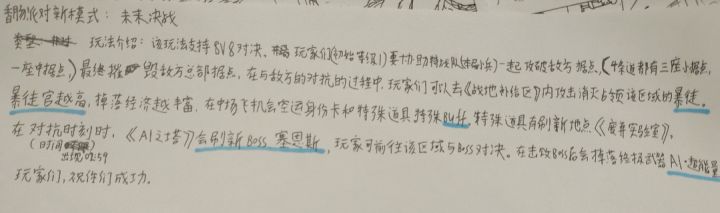 香肠派对新模式：未来决战
玩法介绍：该玩法支持8V8对决。玩家们(初始等级1)要协助特战队(小兵)一起攻破敌方据点、(4条道都有三座小据点,
一座中据点、)最终摧毁敌方总部据点,在与敌方的对抗的过程中,玩家们可以去《战地补给区》内攻击消灭占领该区域的暴徒。
暴徒官越高,掉落经济越丰富,在中场飞机会空运身份卡和特殊道具特殊Buff,特殊道具有刷新地点《废弃实验室》,
在对抗时刻时,《AI之塔》会刷新Boss 塞恩斯,玩家可前往该区域与Boss对决。在击败Boss后会掉落终极武器AI·超能量
(时间
出现02:59
玩家们,祝你们成功.